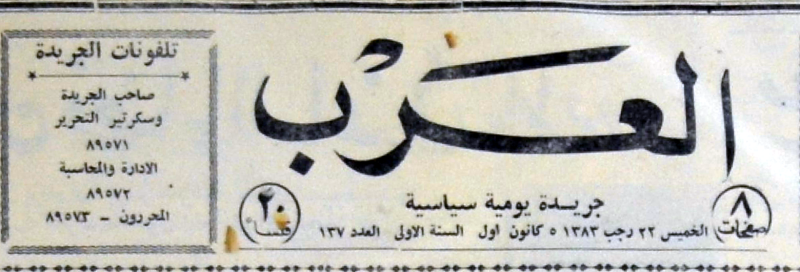 العرب
جريدة يومية سياسية
٨ صفحات
الخميس ٢٢ رجب ١٣٨٣ ٥ كانون اول السنة الاولى العدد ١٣٧
٢٠ فلسا
تلفونات الجريدة
صاحب الجريدة
وسكرتير التحرير
٨٩٥٧١
الادارة والمحاسبة
٨٩٥٧٢
المحررون - ٨٩٥٧٣